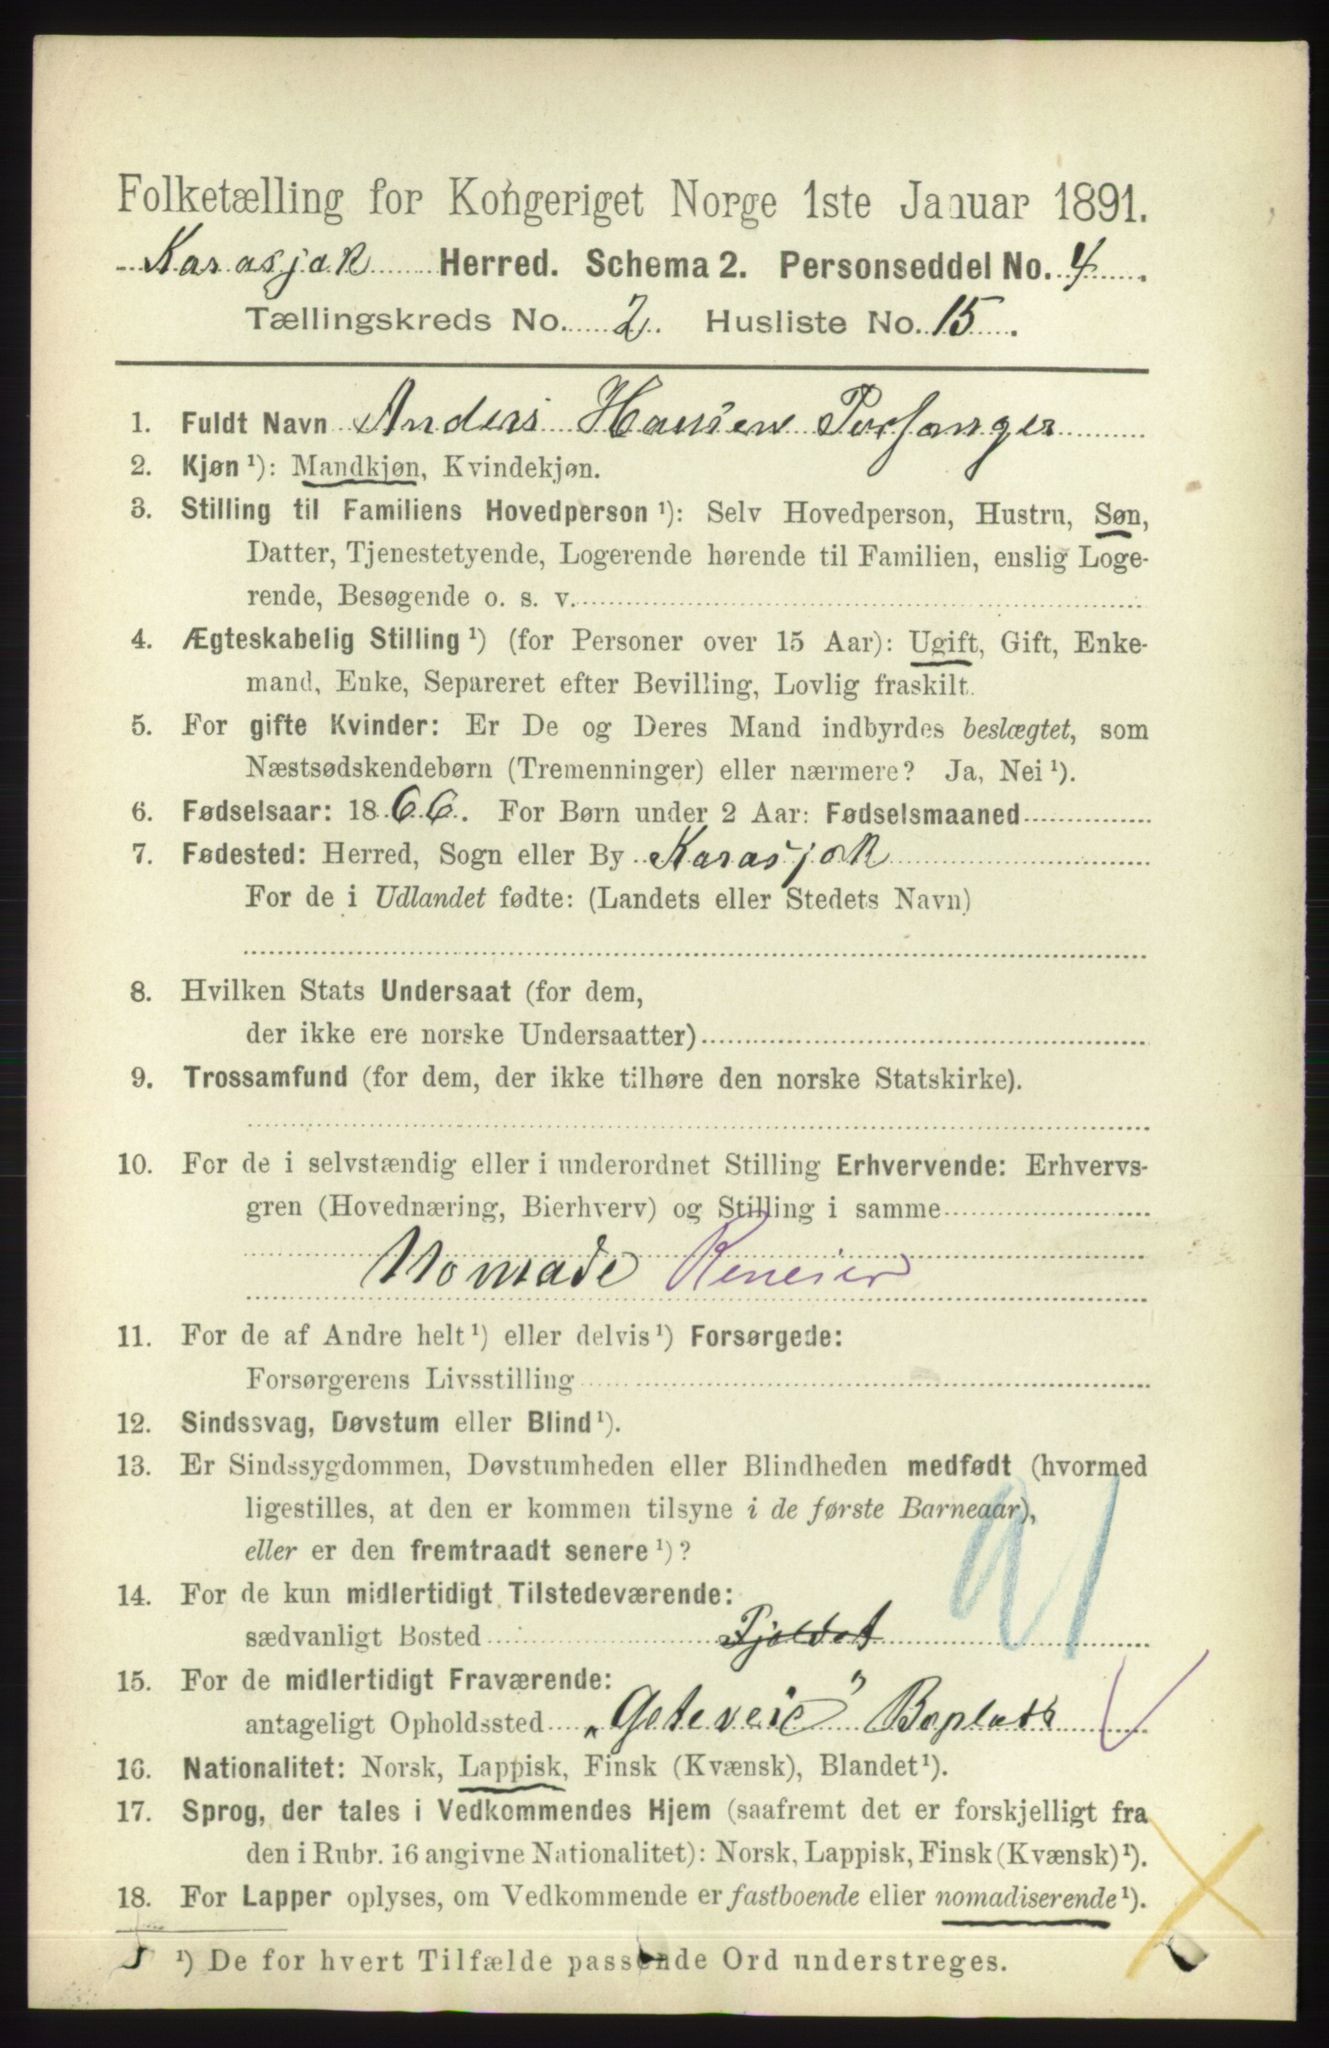 Folketælling for Kongeriget Norge 1ste Januar 1891.
Karasjok Herred. Schema 2. Personseddel No. 4
Tællingskreds No. 2. Husliste No. 15.
1. Fuldt Navn Anders Hansen Porsanger
2. Kjøn ¹): Mandkjøn, Kvindekjøn.
3. Stilling til Familiens Hovedperson ¹): Selv Hovedperson, Hustru, Søn,
Datter, Tjenestetyende, Logerende hørende til Familien, enslig Loge-
rende, Besøgende o. s. v.
4. Ægteskabelig Stilling ¹) (for Personer over 15 Aar): Ugift, Gift, Enke-
mand, Enke, Separeret efter Bevilling, Lovlig fraskilt.
5. For gifte Kvinder: Er De og Deres Mand indbyrdes beslægtet, som
Næstsødskendebørn (Tremenninger) eller nærmere? Ja, Nei ¹).
6. Fødselsaar: 1866. For Børn under 2 Aar: Fødselsmaaned
7. Fødested: Herred, Sogn eller By Karasjok
For de i Udlandet fødte: (Landets eller Stedets Navn)
8. Hvilken Stats Undersaat (for dem,
der ikke ere norske Undersaatter)
9. Trossamfund (for dem, der ikke tilhøre den norske Statskirke).
10. For de i selvstændig eller i underordnet Stilling Erhvervende: Erhvervs-
gren (Hovednæring, Bierhverv) og Stilling i samme
Nomade Reneier
11. For de af Andre helt ¹) eller delvis ¹) Forsørgede:
Forsørgerens Livsstilling
12. Sindssvag, Døvstum eller Blind ¹).
13. Er Sindssygdommen, Døvstumheden eller Blindheden medfødt (hvormed
ligestilles, at den er kommen tilsyne i de første Barneaar),
eller er den fremtraadt senere ¹)?
91
14. For de kun midlertidigt Tilstedeværende:
sædvanligt Bosted
15. For de midlertidigt Fraværende:
antageligt Opholdssted „Geteveic" Boplads
16. Nationalitet: Norsk, Lappisk, Finsk (Kvænsk), Blandet ¹).
17. Sprog, der tales i Vedkommendes Hjem (saafremt det er forskjelligt fra
den i Rubr. 16 angivne Nationalitet): Norsk, Lappisk, Finsk (Kvænsk) ¹).
18. For Lapper oplyses, om Vedkommende er fastboende eller nomadiserende ¹).
¹) De for hvert Tilfælde passende Ord understreges.